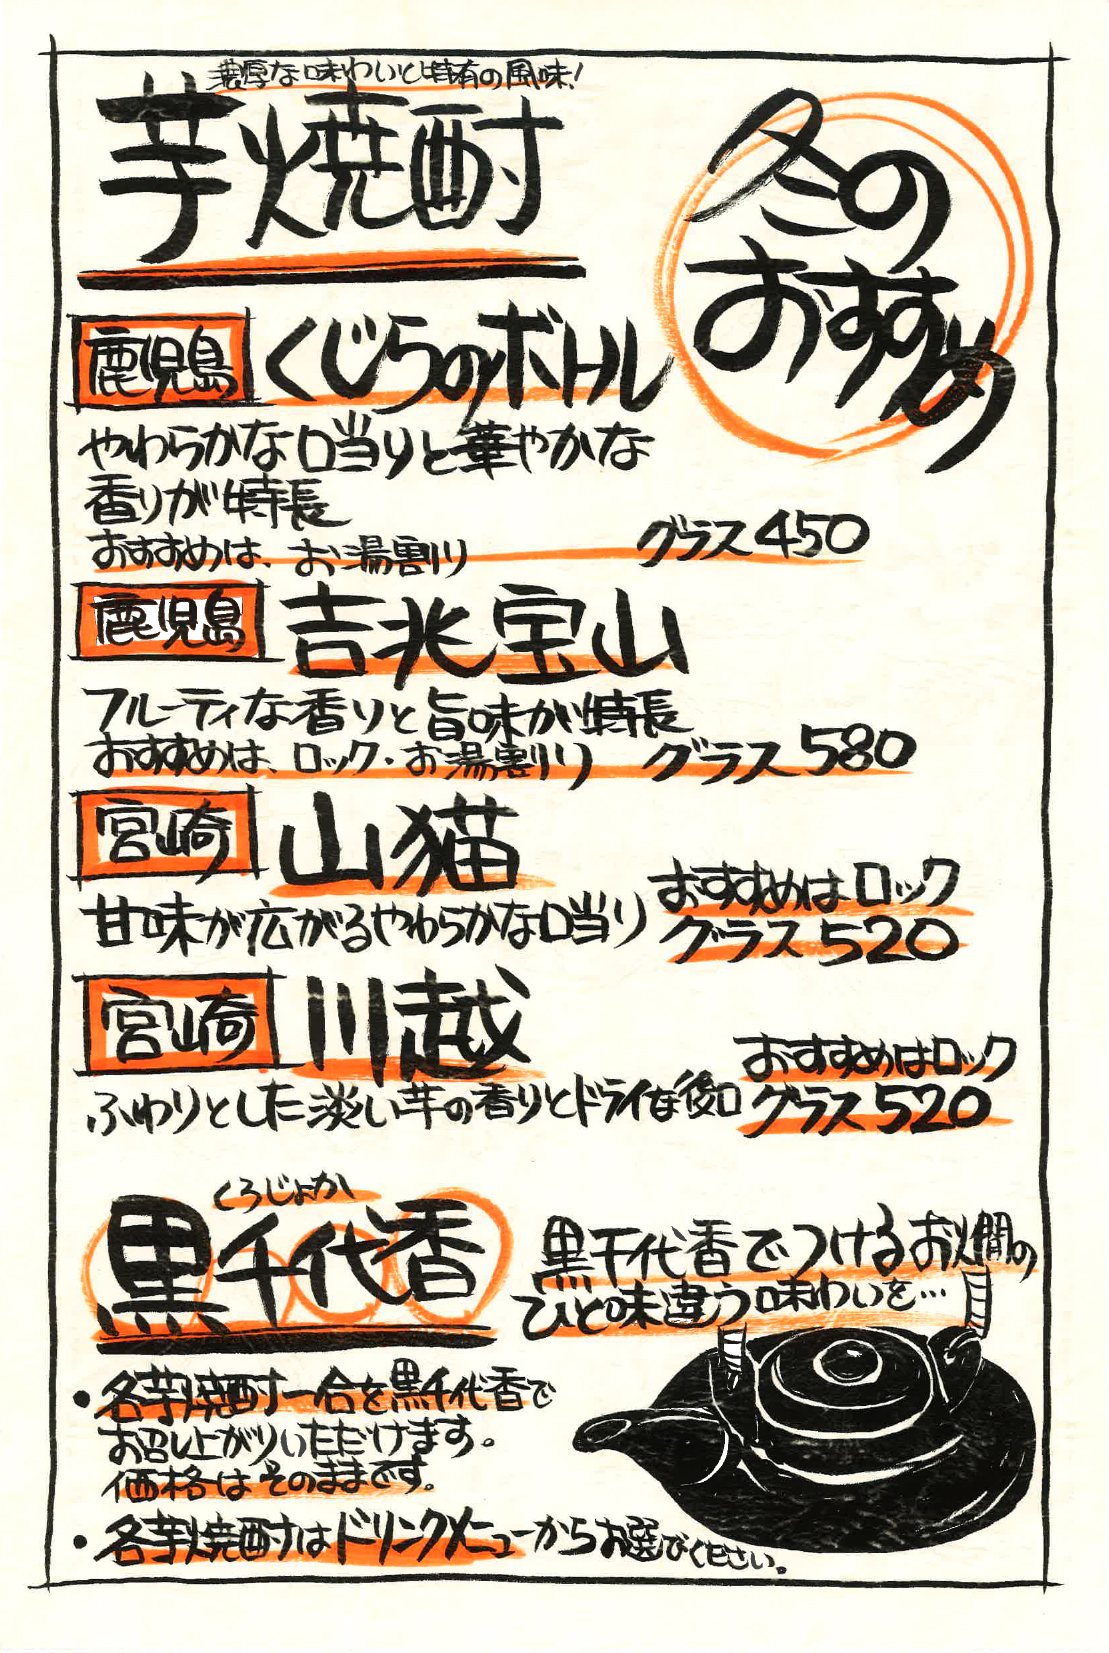 濃厚な味わいと特有の風味!
芋焼酎
冬の
おすすめ
鹿児島 くじらのボトル
やわらかな口当りと華やかな
香りが特長
おすすめは、お湯割り グラス450
鹿児島 吉兆宝山
フルーティな香りと旨味が特長
おすすめは、ロック・お湯割り グラス580
宮崎 山猫
甘味が広がるやわらかな口当り
おすすめはロック
グラス520
宮崎 川越
ふわりとした淡い芋の香りとドライな後口
おすすめはロック
グラス520
くろじょか
黒千代香
黒千代香でつけるお燗の
ひと味違う味わいを…
・各芋焼酎一合を黒千代香で
お召し上がりいただけます。
価格はそのままです。
・各芋焼酎はドリンクメニューからお選びください。